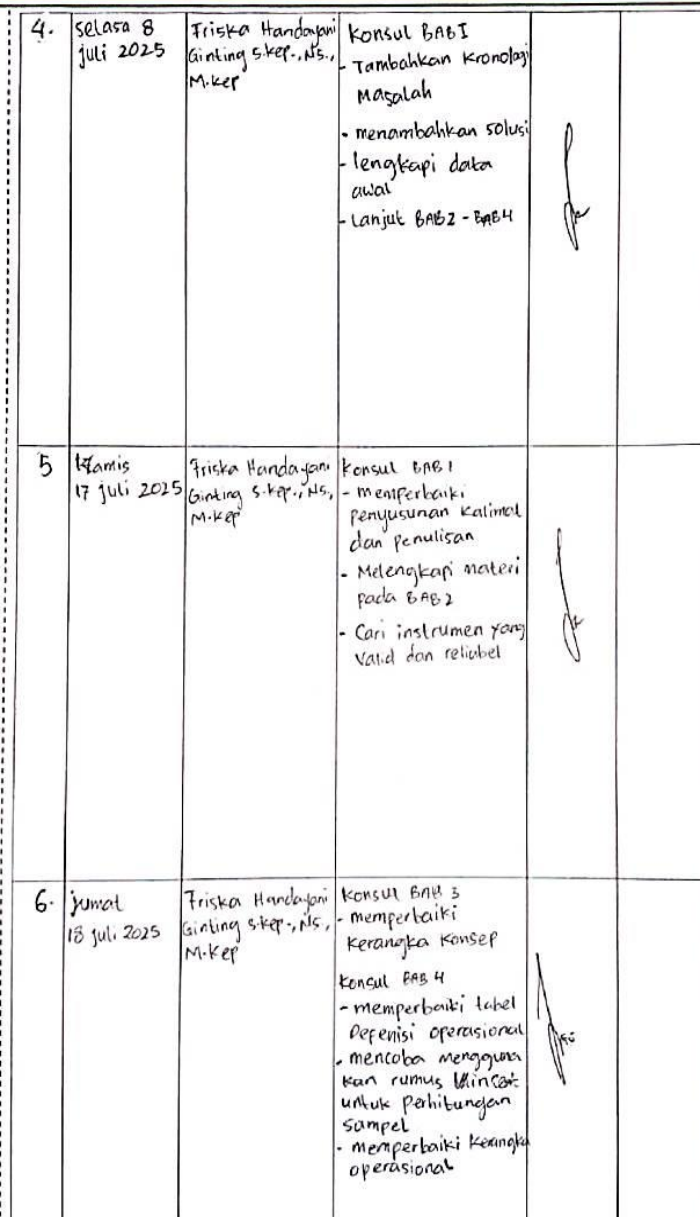 4.
selasa 8
juli 2025
Friska Handayani
Ginting S.kep.,Ns.,
M.kep
Konsul BAB I
- Tambahkan Kronologi
Masalah
- menambahkan solusi
- lengkapi data
awal
- Lanjut BAB2 - BAB4
5
Kamis
17 juli 2025
Friska Handayani
Ginting S.kep.,Ns,
M.kep
Konsul BAB 1
- memperbaiki
penyusunan kalimat
dan penulisan
- Melengkapi materi
pada BAB 2
- Cari instrumen yang
valid dan reliabel
6.
jumat
18 juli 2025
Friska Handayani
Ginting S.kep.,Ns,
M.Kep
Konsul BAB 3
- memperbaiki
Kerangka Konsep
Konsul BAB 4
- memperbaiki tabel
Defenisi operasional
- mencoba mengguna
kan rumus
untuk perhitungan
sampel
- memperbaiki Kerangka
operasional